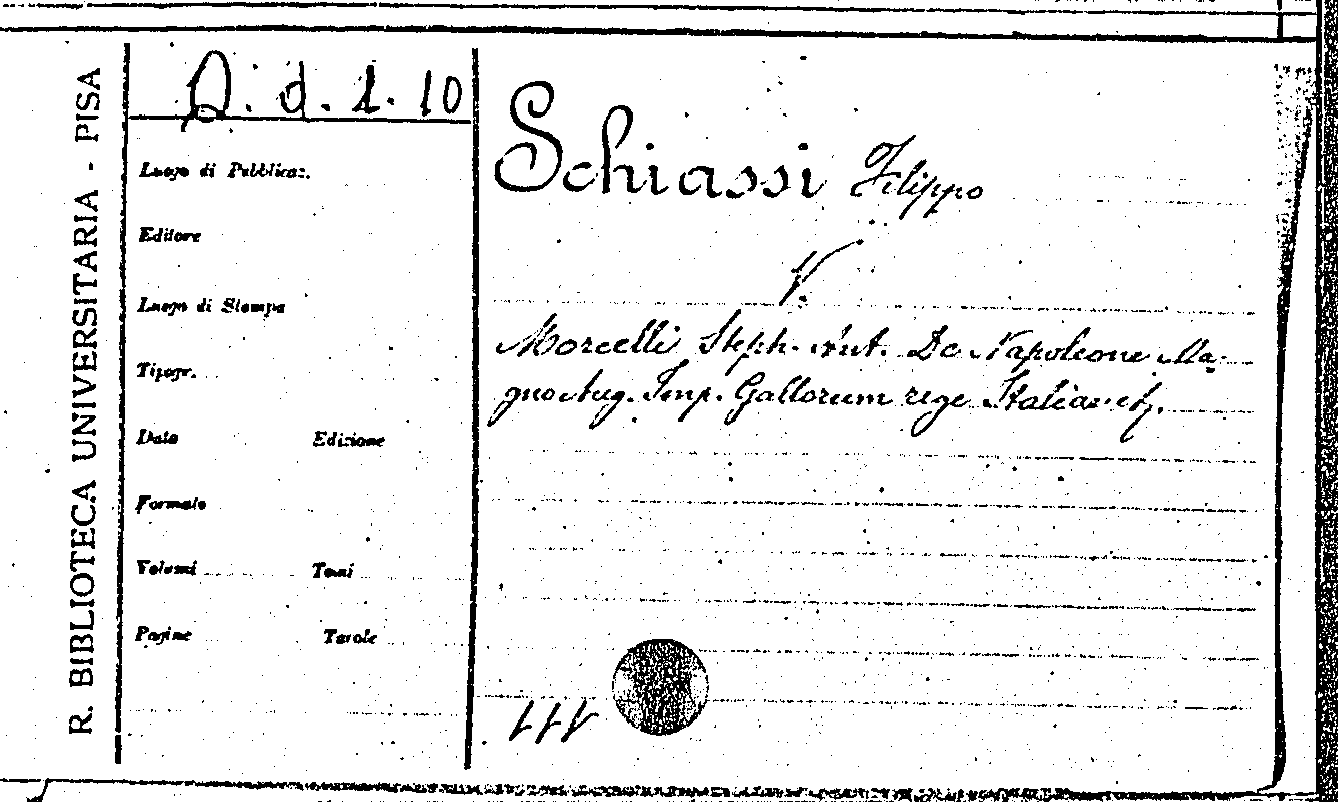 R. BIBLIOTECA UNIVERSITARIA - PISA
Q. d. 1. 10
Luogo di Pubblicaz.
Editore
Luogo di Stampa
Tipogr.
Data Edizione
Formato
Volumi Tomi
Pagine Tavole
Schiassi Filippo
V.
Morcelli Steph. Ant. De Napoleone Ma-
gno Aug. Imp. Gallorum rege Italiae